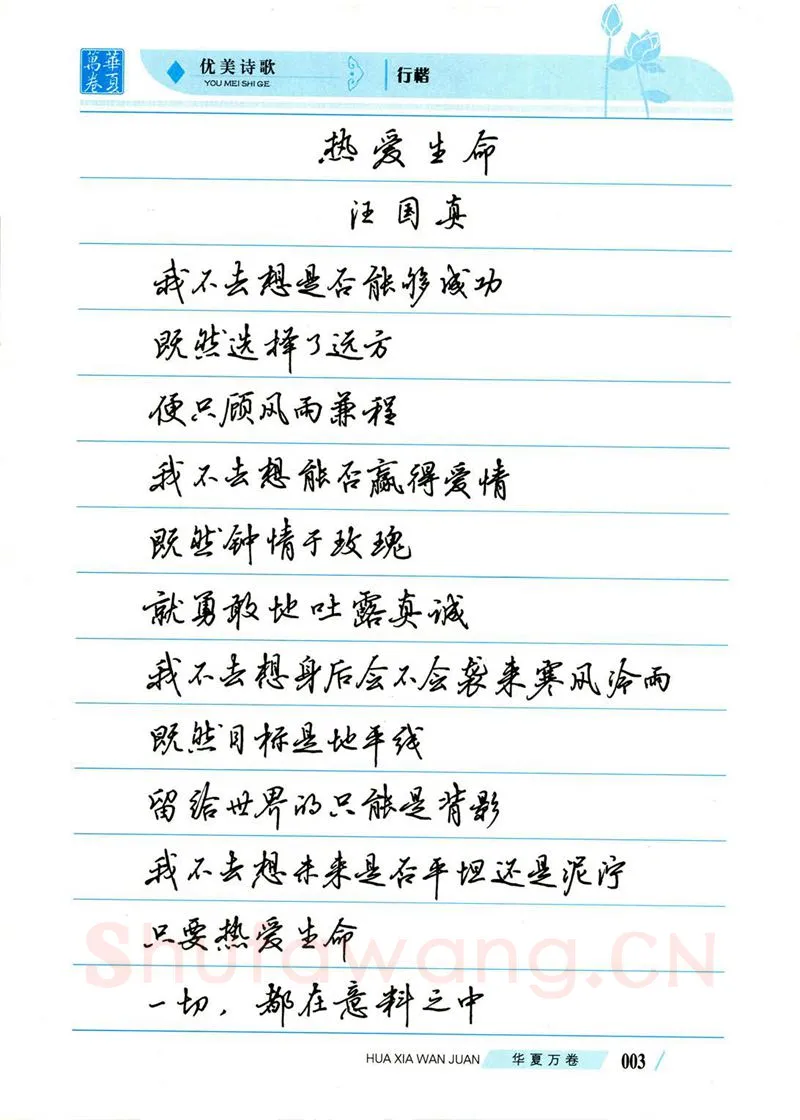 華夏萬卷
优美诗歌
YOU MEI SHI GE
行楷
热爱生命
汪国真
我不去想是否能够成功
既然选择了远方
便只顾风雨兼程
我不去想能否赢得爱情
既然钟情于玫瑰
就勇敢地吐露真诚
我不去想身后会不会袭来寒风冷雨
既然目标是地平线
留给世界的只能是背影
我不去想未来是否平坦还是泥泞
只要热爱生命
一切，都在意料之中
Shufawang.CN
HUA XIA WAN JUAN
华夏万卷
003